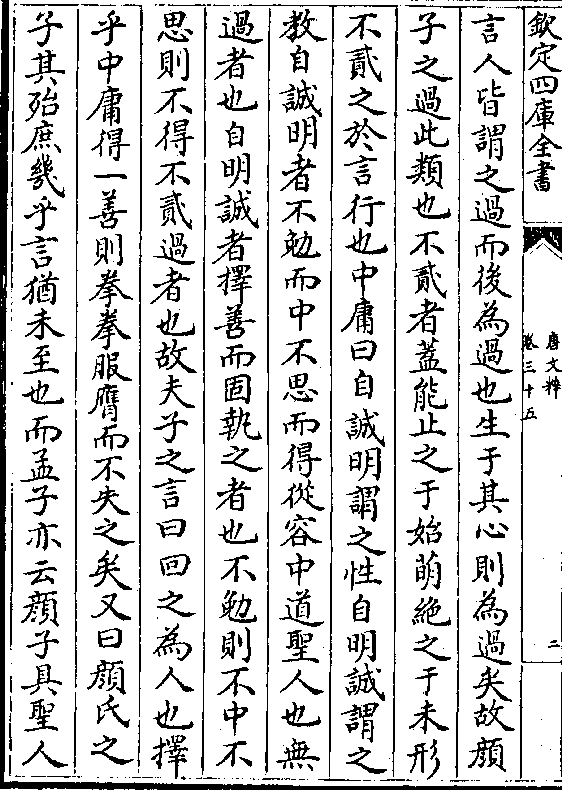 欽定四庫全書
唐文粹
卷三十五
二
言人皆謂之過而後為過也生于其心則為過矣故顔
子之過此類也不貳者蓋能止之于始萌絶之于未形
不貳之於言行也中庸曰自誠明謂之性自明誠謂之
教自誠明者不勉而中不思而得從容中道聖人也無
過者也自明誠者擇善而固執之者也不勉則不中不
思則不得不貳過者也故夫子之言曰回之為人也擇
乎中庸得一善則拳拳服膺而不失之矣又曰顔氏之
子其殆庶幾乎言猶未至也而孟子亦云顔子具聖人